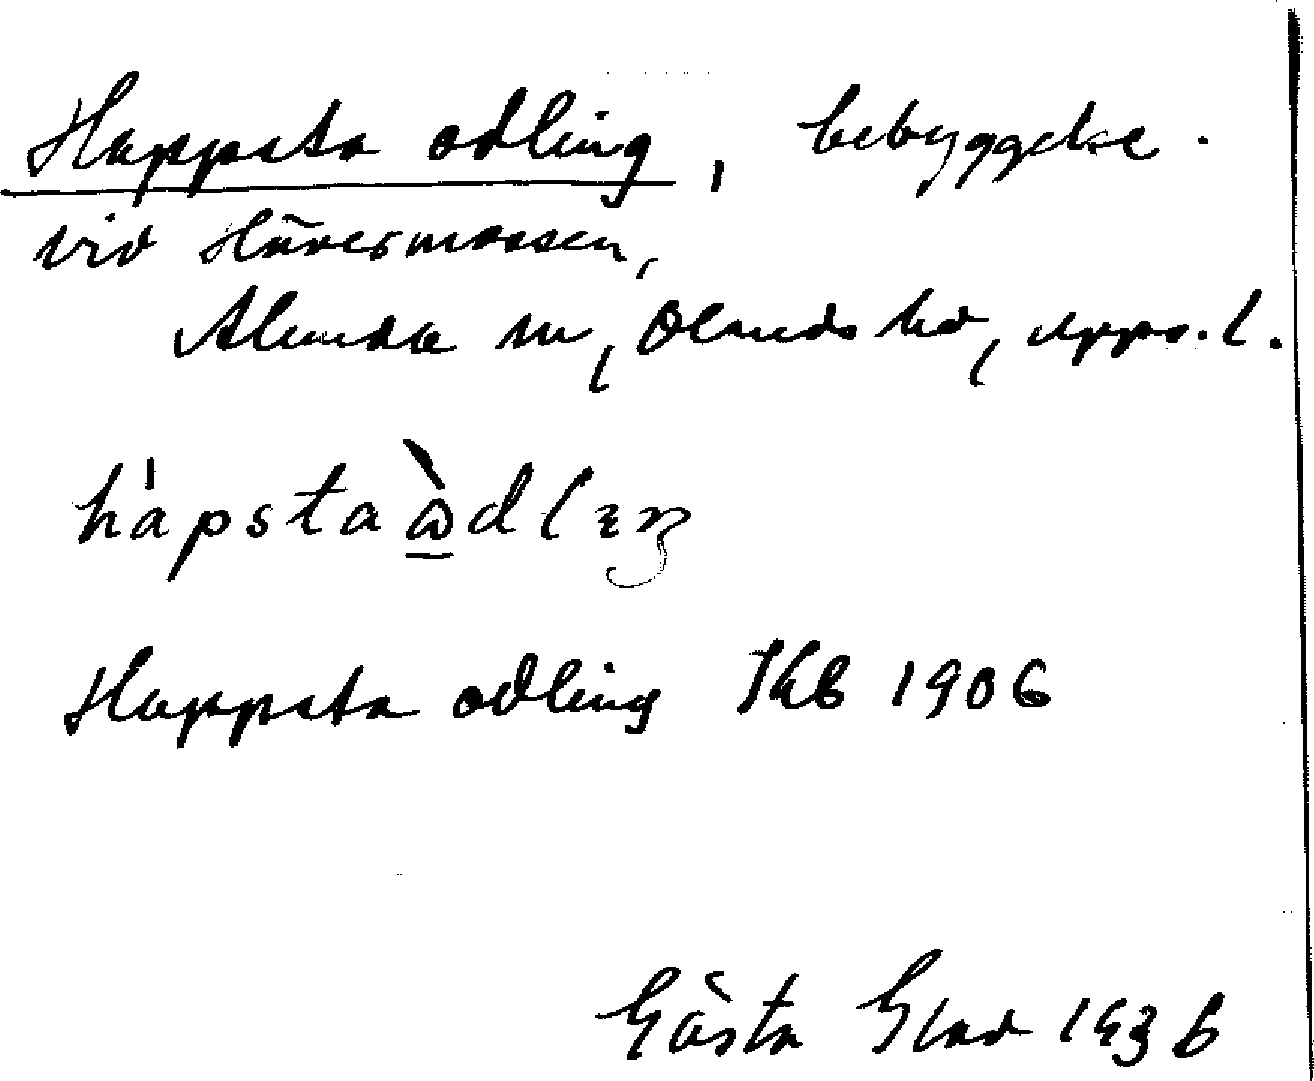 Happsta odling, bebyggelse.
vid Hävermossen,
Alunda sn, Olands hd, Upps. l.
håpsta òdlıŋ
Happsta odling Kkb 1906
Gösta Glad 1936